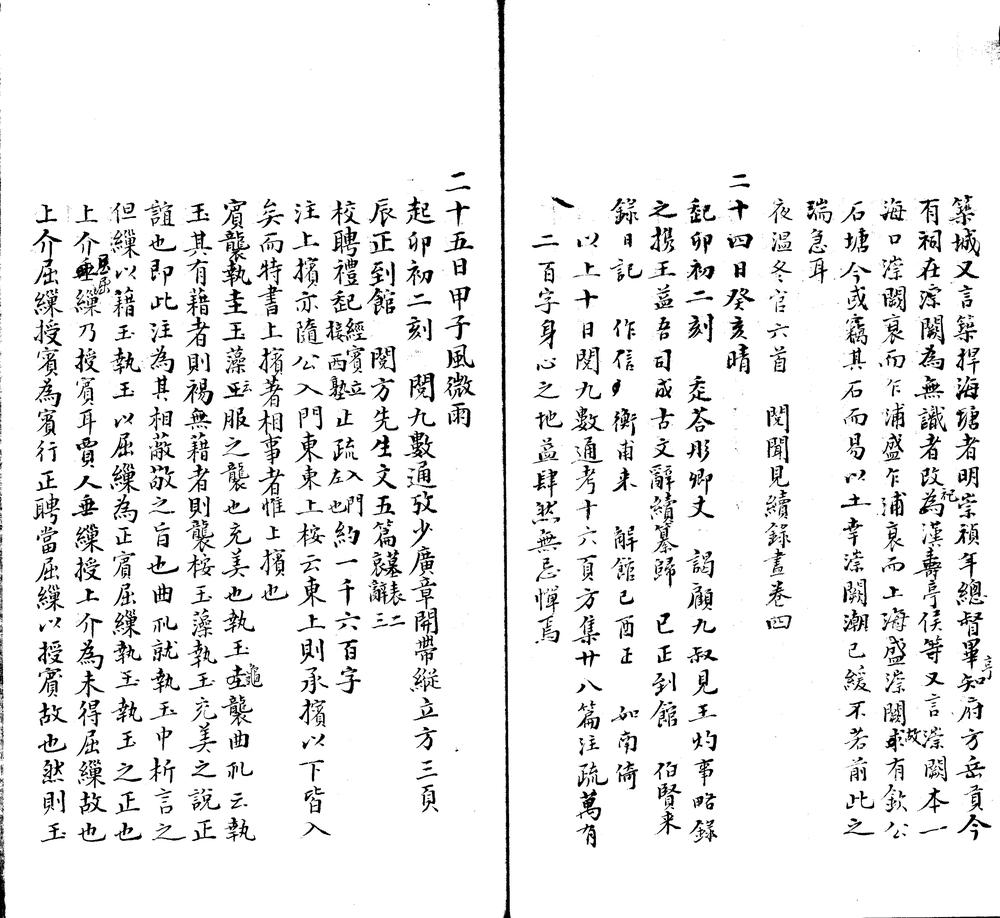 築城又言築捍海塘者明崇禎年總督畢知府方岳貢今
有祠在漴闕為無識者改為漢壽亭侯等又言漴闕本一
海口漴闕衰而乍浦盛乍浦衰而上海盛漴闕故有欽公
石塘今或竊其石而易以土幸漴闕潮已緩不若前此之
湍急耳
夜溫冬官六首 閱聞見續錄畫卷四
二十四日癸亥晴
起卯初二刻 走荅彤卿丈 謁顧九叔見王灼事略錄
之携王益吾司成古文辭續纂歸 巳正到館 伯賢來
錄日記 作信 衡甫来 解館已酉正 如南倚
以上十日閱九數通考十六頁方集廿八篇注疏萬有
二百字身心之地益肆然無忌憚焉
二十五日甲子風微雨
起卯初二刻 閱九數通攷少廣章開帶縱立方三頁
辰正到館 閱方先生文五篇墓表二哀辭三
校聘禮起經賓立接西塾止疏入門左也約一千六百字
注上擯亦隨公入門東東上桉云東上則承擯以下皆入
矣而特書上擯著相事者惟上擯也
賓襲執圭玉藻云服之襲也充美也執玉龜襲曲礼云執
玉其有藉者則裼無藉者則襲桉玉藻執玉充美之說正
誼也即此注為其相蔽敬之旨也曲礼就執玉中析言之
但繅以藉玉執玉以屈繅為正賓屈繅執玉執玉之正也
上介屈繅乃授賓耳賈人垂繅授上介為未得屈繅故也
上介屈繅授賓為賓行正聘當屈繅以授賓故也然則玉